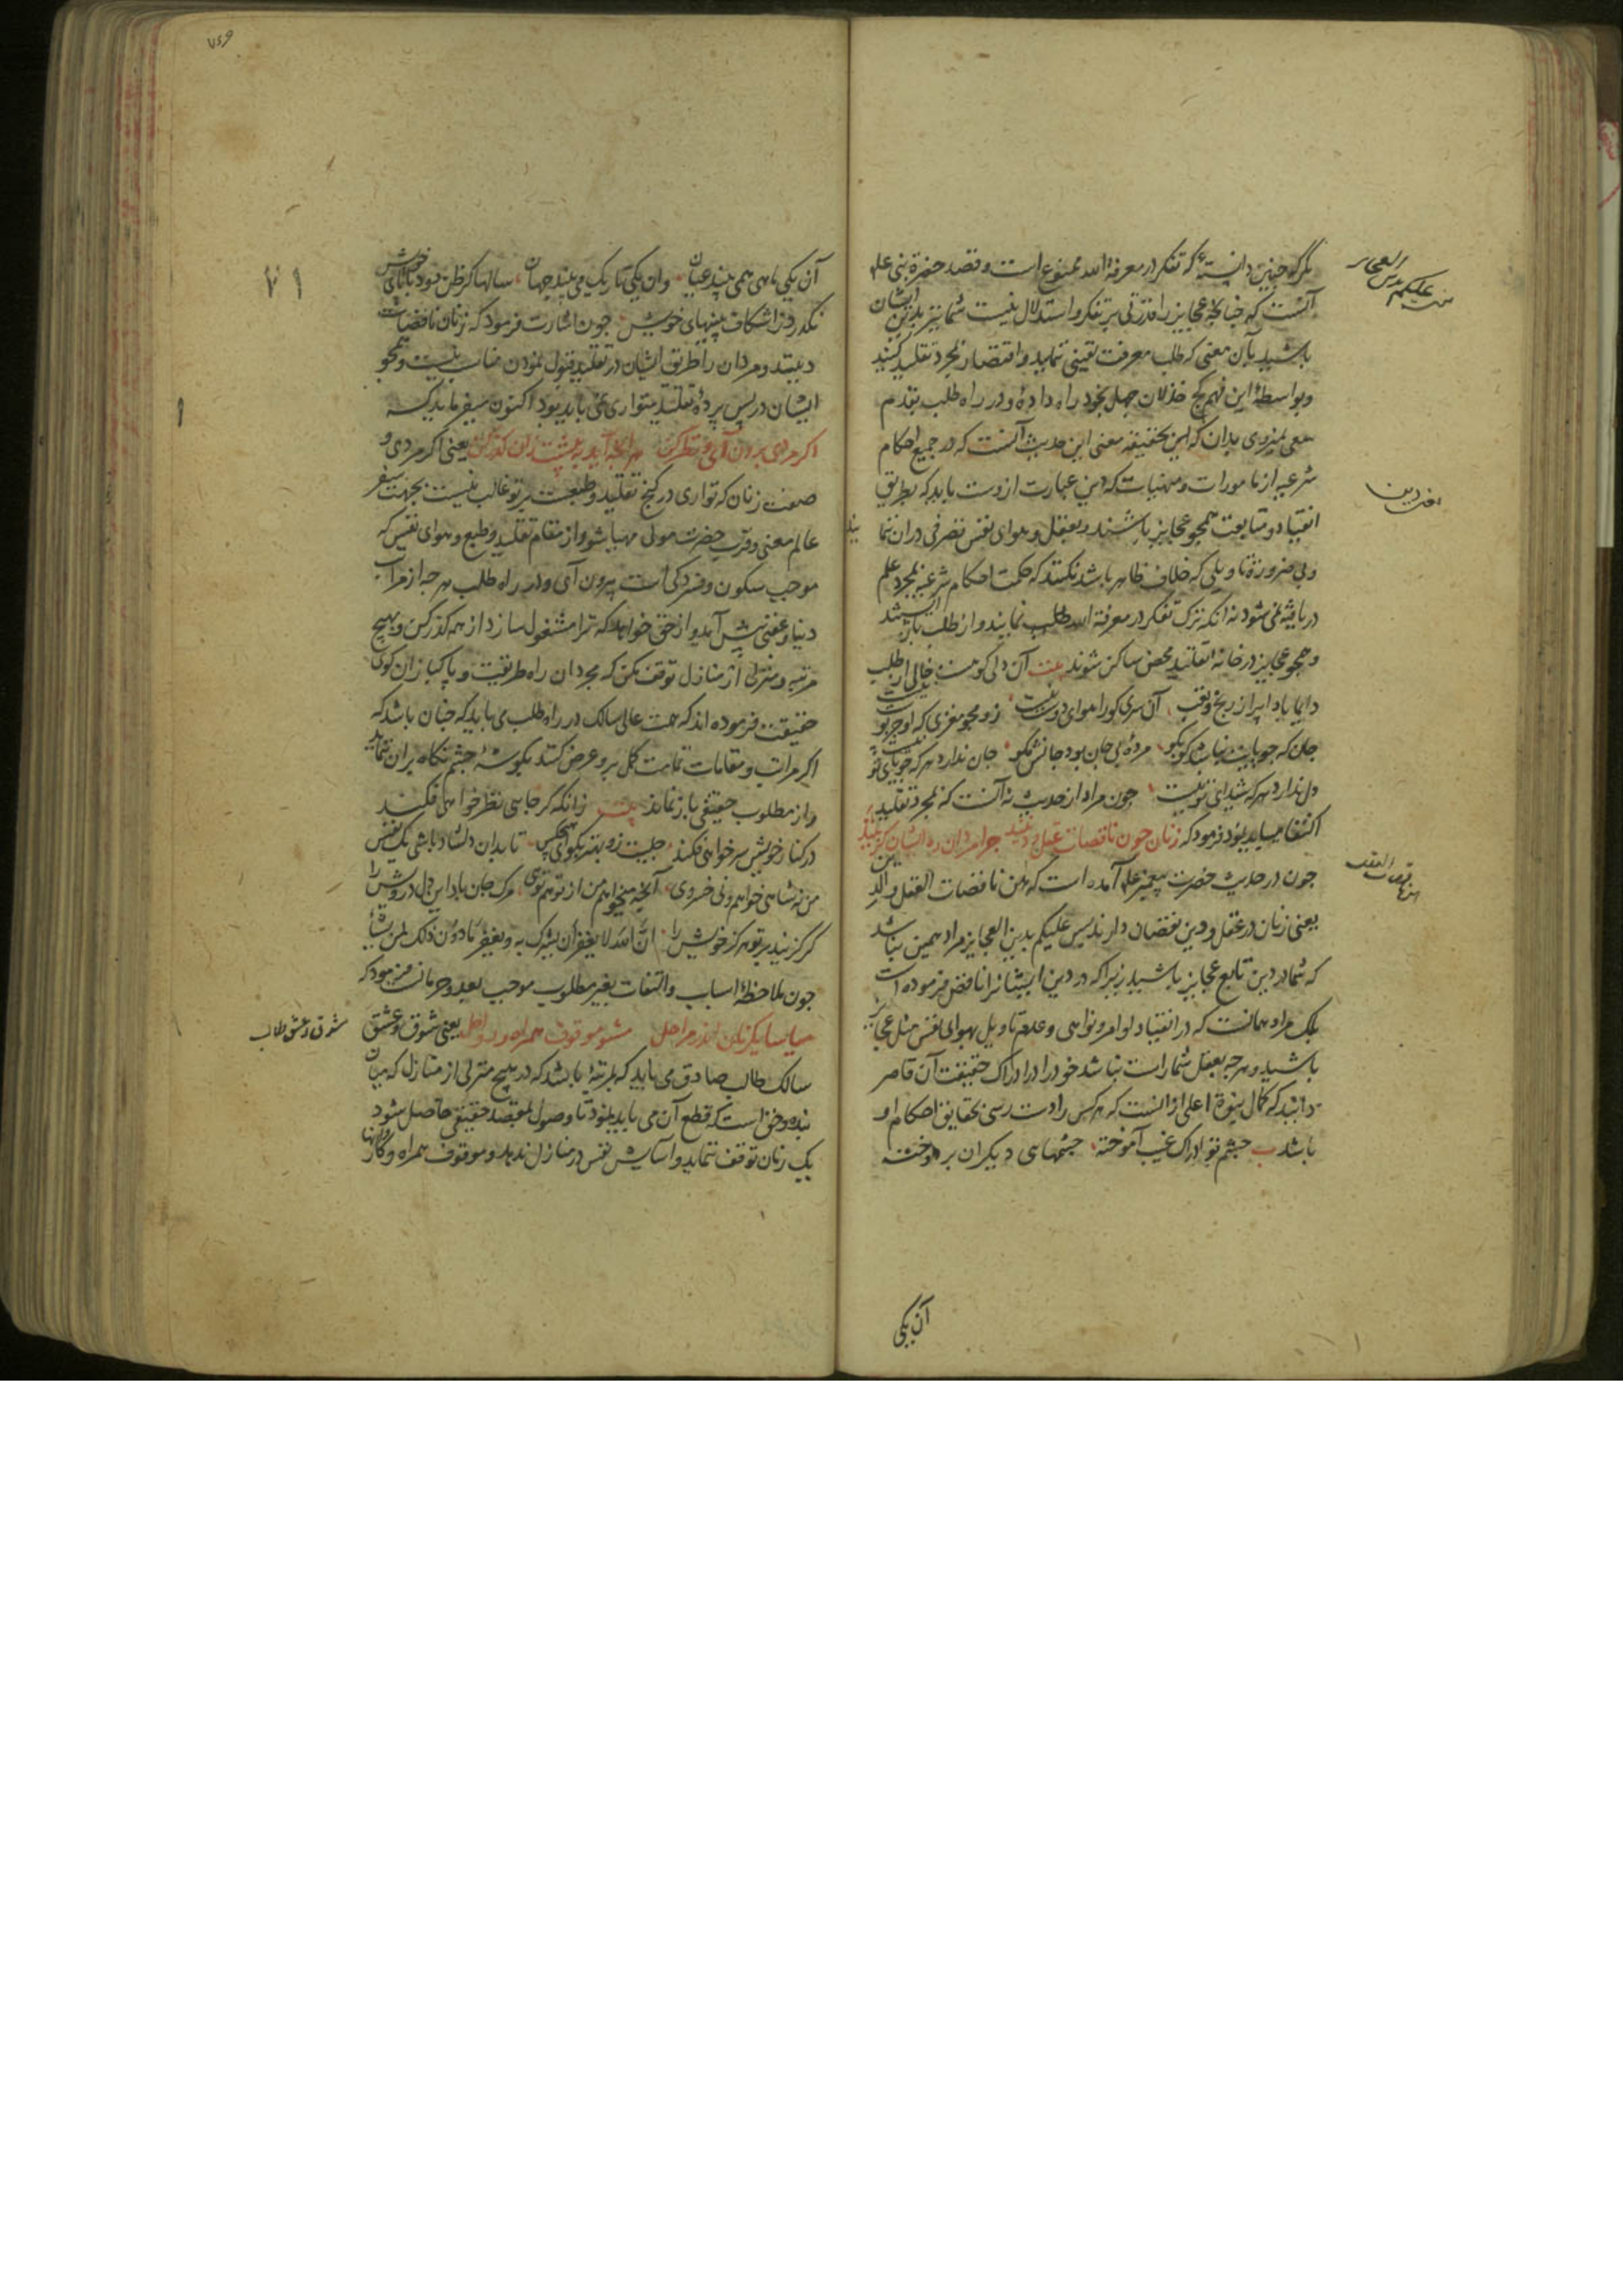 مگر که چنین دانسته که تفکر در معرفة الله ممنوع است و قصد حضرة نبی علم
آنست که چنانچه عجایز را قدرتی بر تفکر و استدلال نیست شما نیز بدین ایشان
باشید بآن معنی که طلب معرفت یقینی ننمایید و اقتصار بمجرد تقلید کنید
و بواسطهٔ این فهم کج خذلان جهل بخود راه داده و در راه طلب تقدم
سعی نمیروی بدان که این تحقیقه معنی این حدیث آنست که در جمیع احکام
شرعیه از مامورات و منهیات که دین عبارت ازوست باید که بطریق
انقیاد و متابعت همچو عجایز باشند و بعقل و هوای نفس تصرفی در ان ننما
یند
و بی ضرورة تاویلی که خلاف ظاهر باشد نکنند که حکمت احکام شرعیه بمجرد علم
دریافته نمی شود نه انکه ترک تفکر در معرفة الله طلب نمایند و از طلب باز ایستند
و همچو عجایز در خانه تقلید محض ساکن شوند بیت آن دلی کو هست خالی از طلب
دایما بادا پر از رنج و تعب آن سری کو را هوای دوست نیست زو مجو مغزی که او جز پوست نیست
جان که جویایت نباشد کو بکو مردهٔ بی جان بود جانش مگو جان ندارد هر که جویای تو نیست
دل ندارد هر که شیدای تو نیست چون مراد از حدیث نه آنست که بمجرد تقلید
اکتفا میباید نمود فرمود که زنان چون ناقصات عقل و دینند چرا مردان ره ایشان گزینند
چون در حدیث حضرت پیغمبر علم آمده است که هن ناقصات العقل و الدین
یعنی زنان در عقل و دین نقصان دارند پس علیکم بدین العجایز مراد همین نباشد
که شما در دین تابع عجایز باشید زیرا که در دین ایشانرا ناقص فرموده است
بلکه مراد همانست که در انقیاد اوامر و نواهی و عدم تاویل بهوای نفس مثل عجایز
باشید و هر چه بعقل شما راست نباشد خود را در ادراک حقیقت آن قاصر
دانید که کمال نبوة اعلی از آنست که هر کس را دست رسی بحقایق احکام او
باشد ب چشم تو ادراک غیب آموخته چشمهای دیگران بر دوخته
آن یکی
علیکم بدین العجایز
ناقصات العقل
آن یکی ماهی همی بیند عیان وان یکی تاریک می بیند جهان سالها گر ظن دود با پای خویش
نگذرد ز اشکاف بینیهای خویش چون اشارت فرمود که زنان ناقصات
دینند و مردان را طریق ایشان در تقلید قبول نمودن مناسب نیست و همچو
ایشان در پس پردهٔ تقلید متواری نمی باید بود اکنون میفرماید که
اگر مردی برون آی و نظر کن هر آنچه آید به پیشت زان گذر کن یعنی اگر مردی و
صفت زنان که تواری در کنج تقلید و طبیعت بر تو غالب نیست بجهت سفر
عالم معنی و قرب حضرت مولی مهیا شو و از مقام تقلید و طبع و هوای نفس که
موجب سکون و فسردگی است بیرون آی و در راه طلب هر چه از مراتب
دنیا و عقبی پیش آید و از حق خواهد که ترا مشغول سازد از همه گذر کن و بهیچ
مرتبه و منزلی از منازل توقف مکن که مجردان راه طریقت و پاکبازان کوی
حقیقت فرموده اند که همت عالی سالک در راه طلب می باید که چنان باشد که
اگر مراتب و مقامات تمامت کمل برو عرض کنند بگوشهٔ چشم نگاه بران ننماید
و از مطلوب حقیقی باز نماند بیت زانکه گر جایی نظر خواهی فکند
در کنار خویش سر خواهی فکند چیست زو بهتر بگو ای هیچکس تا بدان دلشاد باشی یک نفس
من نه شاهی خواهم و نی خسروی آنچه میخواهم من از تو هم توی مرگ جان باد این دل درویش را
گر گزیند بر تو هرگز خویش را ان الله لا یغفر ان یشرک به و یغفر ما دون ذلک لمن یشاء
چون ملاحظهٔ اسباب و التفات بغیر مطلوب موجب بعد و حرمانست فرمود که
میاسا یکزمان اندر مراحل مشو موقوف همراه و رواحل یعنی شوق و عشق
سالک طالب صادق می باید که بمرتبهٔ باشد که در هیچ منزلی از منازل که میان
بنده و حق است که قطع آن می باید نمود تا وصول بمقصد حقیقی حاصل شود
یک زمان توقف ننماید و آسایش نفس در منازل ندهد و موقوف همراه و کاروانها
شوق و عشق طالب
۷۱